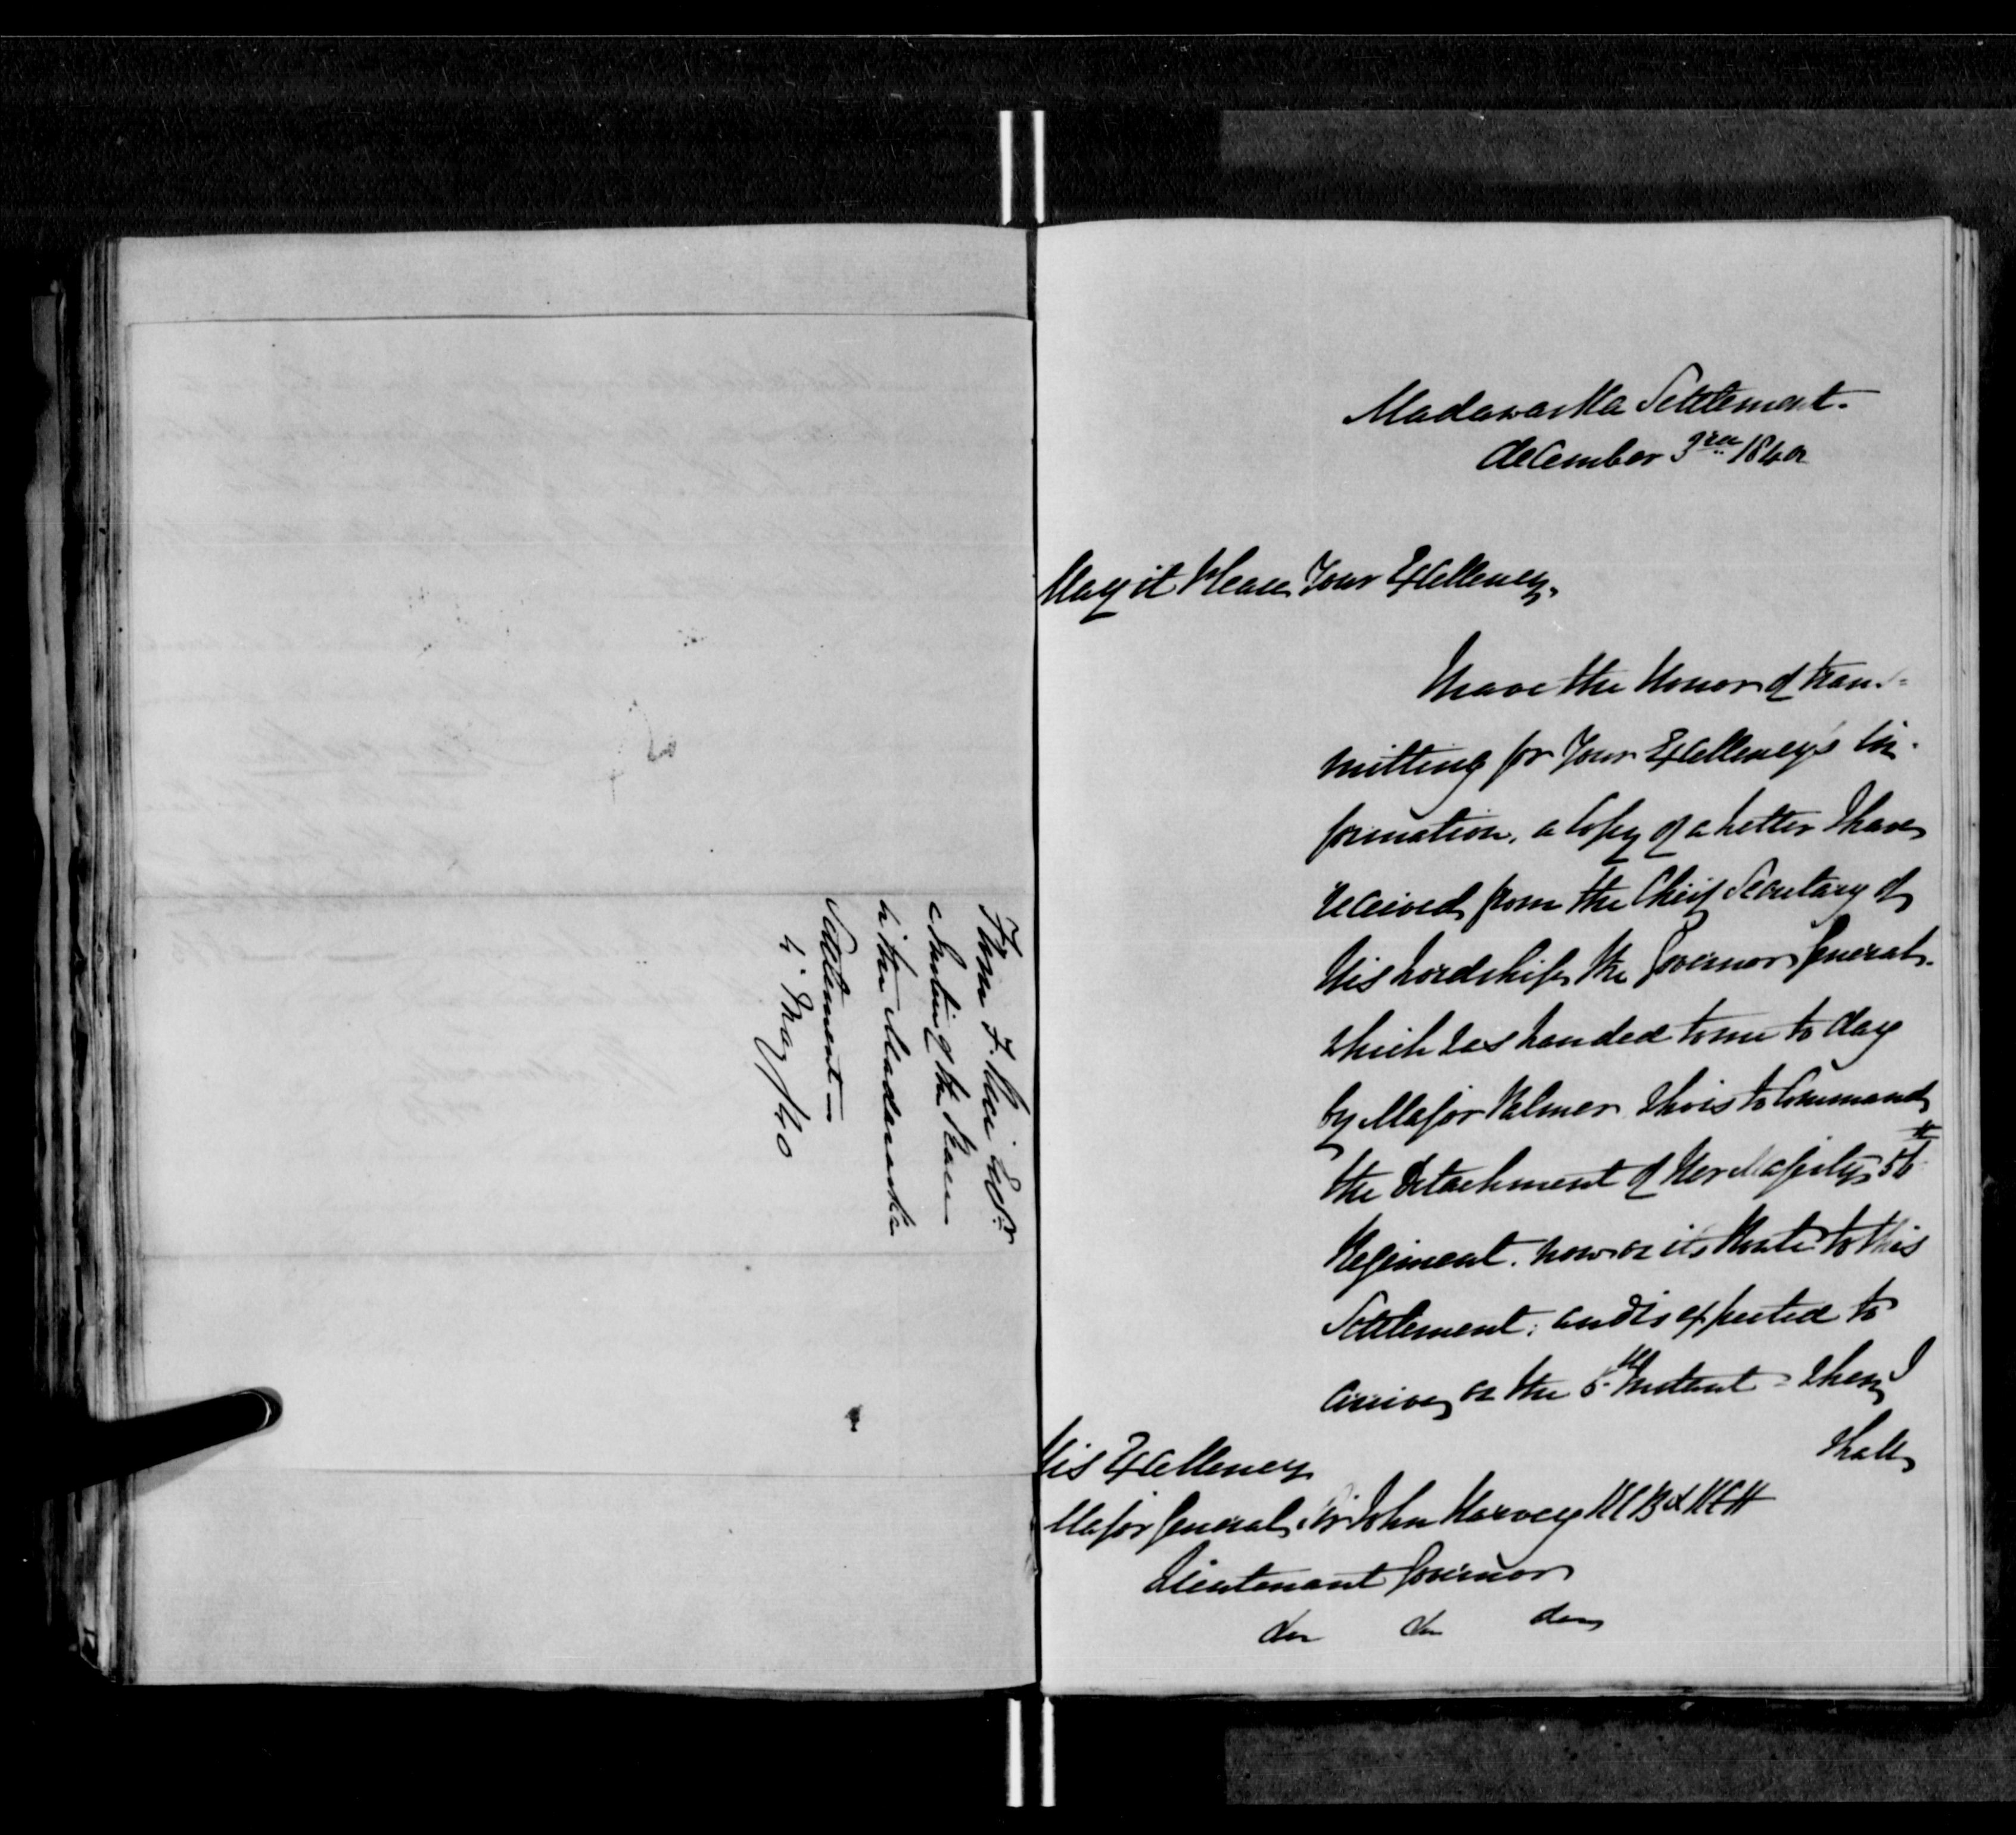 From F. Rice Esqr
a Justice of the Peace
in the Madawaska
Settlement —
4 May /40
Madawaska Settlement.
December 3rd 1840
May it Please Your Excellency,
I have the Honor of trans=
mitting for Your Excellency's in-
formation, a Copy of a Letter I have
received from the Chief Secretary of
His Lordship the Governor General.
which was handed to me to day
by Major Palmer who is to Command
the Detachment of Her Majesty's 56th
Regiment. now on its Route to this
Settlement; and is expected to
arrive on the 5th Instant = when I
shall
His Excellency
Major General Sir John Harvey KCB & KCH
Lieutenant Governor
&c &c &c